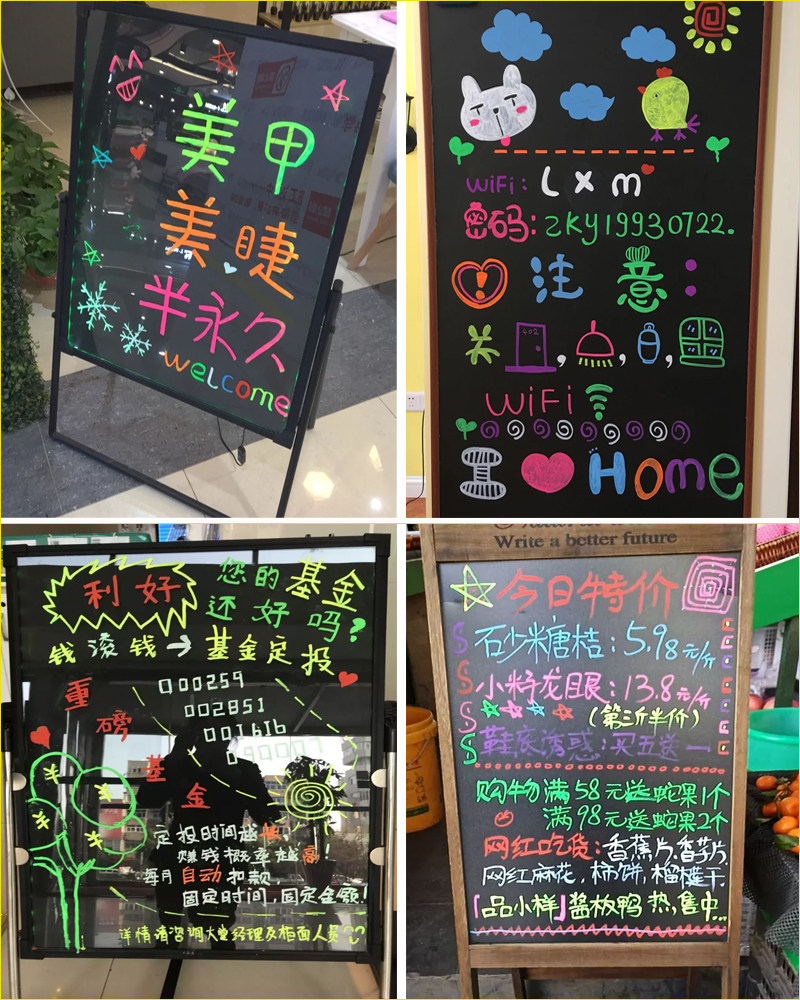 美甲
美睫
半永久
welcome
WiFi: Lxm
密码: zky19930722.
注意:
关 402 , , ,
WiFi
I Home
利好
您的基金
还好吗?
钱滚钱→基金定投
重磅基金
000259
002851
001616
定投时间越
赚钱概率越高!
每月自动扣款,
固定时间,固定金额!
详情请咨询大堂经理及柜面人员
Write a better future
今日特价
砂糖桔:5.98元/斤
小籽龙眼:13.8元/斤
(第三斤半价)
鞋底诱惑:买五送一
购物满58元送蛇果1个
满98元送蛇果2个
网红吃货:香蕉片.香芋片,
网红麻花,柿饼,榴梿干.
「品小样」酱板鸭 热售中...